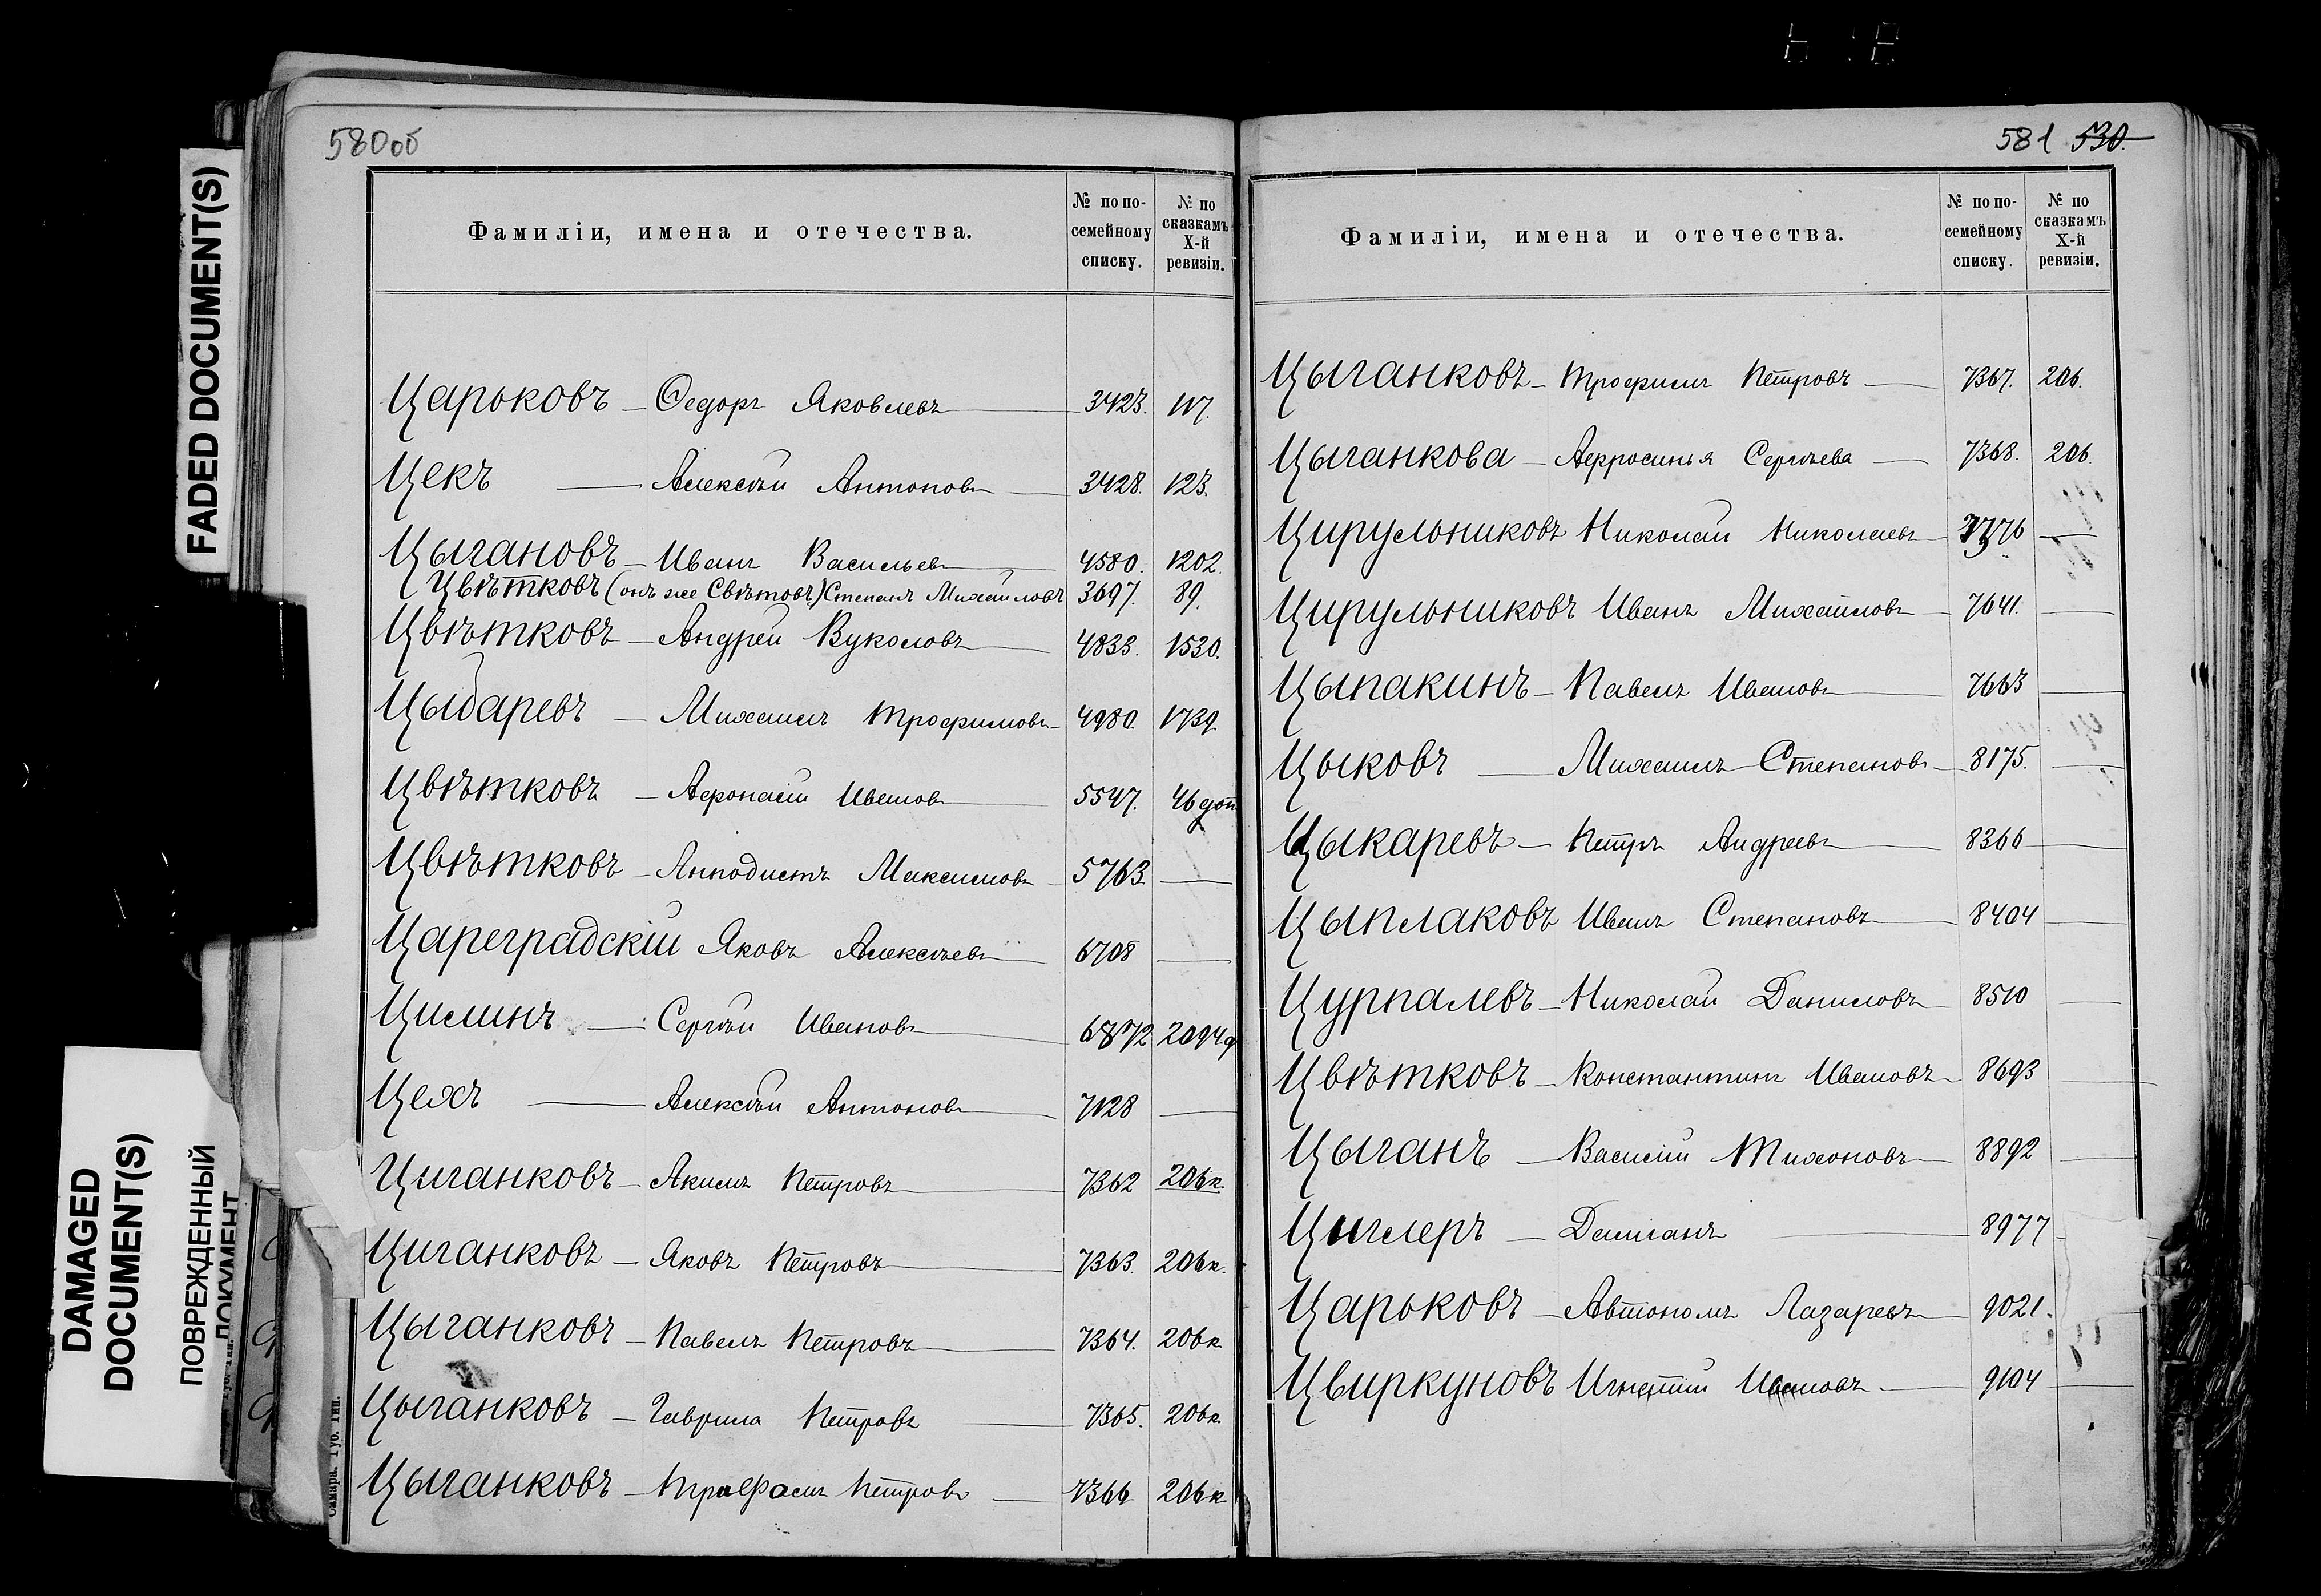 FADED DOCUMENT(S)
DAMAGED
DOCUMENT(S)
ПОВРЕЖДЕННЫЙ
ДОКУМЕНТ
580об
Фамиліи, имена и отечества.
№ по по-
семейному
списку.
№ по
сказкамъ
X-й
ревизіи.
Царьковъ — Ѳедоръ Яковлевъ 3423. 117.
Цекъ — Алексѣй Антоновъ 3428. 123.
Цыгановъ — Иванъ Васильевъ 4580. 1202.
Цвѣтковъ (онъ же Свѣтовъ) Степанъ Михайловъ 3697. 89.
Цвѣтковъ — Андрей Вуколовъ 4833. 1530.
Цыбаревъ — Михаилъ Трофимовъ 4980. 1739.
Цвѣтковъ — Афонасій Ивановъ 5547. 46 доп
Цвѣтковъ — Анподистъ Максимовъ 5763. —
Цареградскій Яковъ Алексѣевъ 6708 —
Цилинъ — Сергѣй Ивановъ 6872 2094д
Цехъ — Алексѣй Антоновъ 7128 —
Циганковъ — Акимъ Петровъ 7362 206к.
Циганковъ — Яковъ Петровъ 7363. 206к.
Цыганковъ — Павелъ Петровъ 7364. 206к
Цыганковъ — Гаврила Петровъ 7365. 206к.
Цыганковъ — Петровъ 7366 206к
Самара. Губ. Тип.
581 530.
Фамиліи, имена и отечества.
№ по по-
семейному
списку.
№ по
сказкамъ
X-й
ревизіи.
Цыганковъ — Трофимъ Петровъ — 7367. 206.
Цыганкова — Аефросинья Сергѣева — 7368. 206.
Цирульниковъ Николай Николаевъ —
Цирульниковъ Иванъ Михайловъ — 7641. —
Цыпакинъ — Павелъ Ивановъ — 7663 —
Цыковъ — Михаилъ Степановъ — 8175. —
Цыкаревъ — Петръ Андреевъ — 8366 —
Цыплаковъ Иванъ Степановъ — 8404 —
Цурпалевъ — Николай Даниловъ — 8510 —
Цвѣтковъ — Константинъ Ивановъ — 8693 —
Цыганъ — Василій Тихоновъ — 8892 —
Циглеръ — Даміанъ — 8977 —
Царьковъ — Автономъ Лазаревъ — 9021. —
Цвиркуновъ Игнатій Ивановъ — 9104 —